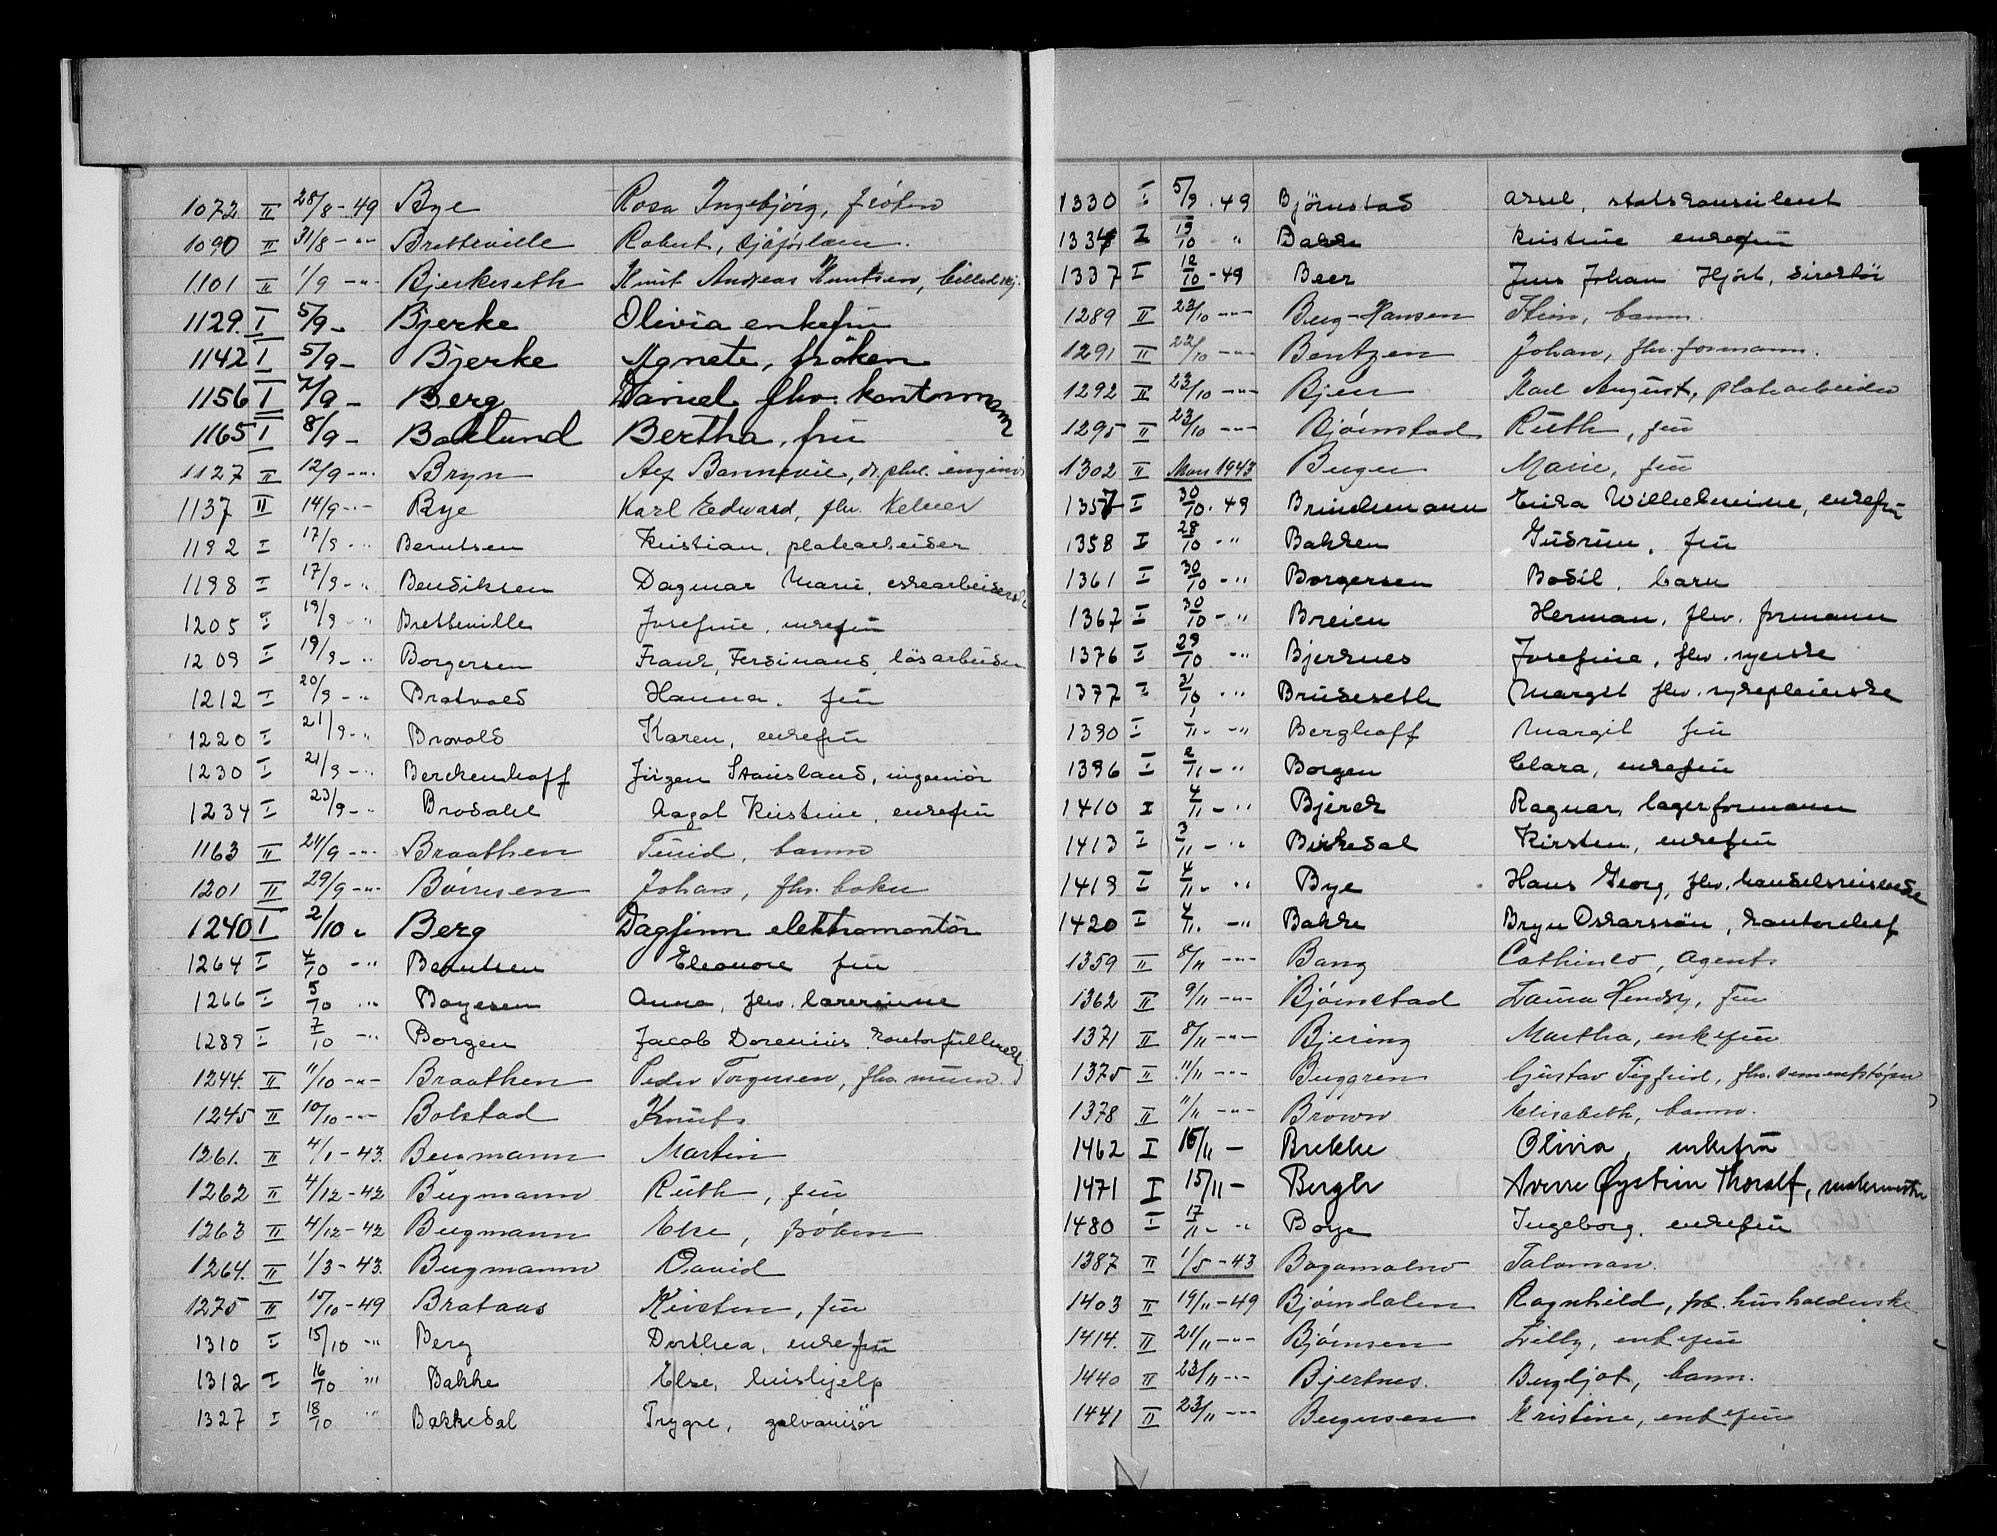 1072 II 28/8-49 Bye Rosa Ingebjörg, fröken
1090 II 31/8 - " - Bretteville Robert,
1101 II 1/9 - " - Bjerkeseth Knut Andreas Knutsen,
1129 I 5/9 - Bjerke Olivia enkefru
1142 I 5/9 - Bjerke Agnete, fröken
1156 I 7/9 - Berg Daniel fhv. kontormann
1165 I 8/9 - Baklund Bertha, fru
1127 II 12/9 - " - Bryn Alf Bonnevie, dr. phil. ingeniör
1137 II 14/9 - " - Bye Karl Edward, fhv. kelner
1192 I 17/9 - " Berntsen Kristian, platearbeider
1198 I 17/9 - " Bendiksen Dagmar Marie, eskearbeiderske
1205 I 19/9 - " Bretteville Josefine, enkefru
1209 I 19/9 - " Borgersen Frank, Ferdinand, lösarbeider
1212 I 20/9 - " Bratvold Hanna, fru
1220 I 21/9 - " Brovold Karen, enkefru
1230 I 21/9 - " Berckenhoff Jörgen Stousland, ingeniör
1234 I 23/9 - " Brodahl Aagot Kristine, enkefru
1163 II 24/9 - " - Braathen Turid, barn
1201 II 29/9 - " - Börresen Johan, fhv. baker
1240 I 2/10 " Berg Dagfinn elektromontör
1264 I 4/10 - " Berntsen Eleonore fru
1266 I 5/10 " Boyesen Anna, fhv. lærerinne
1289 I 7/10 - " Borgen Jacob Dorenius kontorfullmektig
1244. II 11/10 - " - Braathen Peder Torgersen, fhv. murer
1245 II 10/10 - " - Bolstad Knut
1261. II 4/1 - 43. Bermann Martin
1262 II 4/12 - 42 Bergmann Ruth, fru
1263 II 4/12 - 42 Bergmann Else, fröken
1264. II 1/3 - 43. Bergmann David
1275 II 15/10 - 49 Brataas Kirsten, fru
1310 I 15/10 - " Berg Dorthea, enkefru
1312 I 16/10 " Bakke Else, hushjelp
1327 I 18/10 " Bakkedal Trygve, galvanisör
1330 I 5/9 . 49 Björnstad Aksel, statskonsulent
1334 I 13/10 " Bakke Kristine enkefru
1337 I 12/10 - 49 Beer Jens Johan Hjört, direktör
1289 II 23/10 - " - Berg-Hansen barn.
1291 II 22/10 - " - Bentzen Johan, fhv. formann.
1292 II 23/10 - " - Bjen Karl August, platearbeider
1295 II 23/10 - " - Björnstad Ruth, fru
1302 II Mars 1943 Berger Marie, fru
1357 I 30/10 . 49 Brinchmann Erika Wilhelmine, enkefru
1358 I 28/10 - " Bakken Gudrun, fru
1361 I 30/10 - " Borgersen Bodil, barn
1367 I 30/10 - " Breien Herman, fhv. formann
1376 I 29/10 - " Bjerknes Josefine, fhv. syerske
1377 I 31/10 - " Brudeseth Margit fhv. sykepleierske
1390 I 1/11 - - " Berghoff Margit fru
1396 I 2/11 - " Borgen Clara, enkefru
1410 I 4/11 - " Bjerck Ragnar, lagerformann
1413 I 3/11 - " Birkedal Kirsten, enkefru
1419 I 4/11 - " Bye Hans Georg, fhv. handelsreisende
1420 I 4/11. - " Bakke Bryn Oskarssön, kontorchef
1359 II 8/11 - " - Bang Cathinco, Agent
1362 II 9/11 - " - Björnstad Laura Hendsy, fru
1371 II 8/11 - " - Bjering Martha, enkefru
1375 II 11/11 - " - Berggren Gustav Sigfrid, fhv. sementstöper
1378 II 11/11 - " - Brown Elisabeth, barn.
1462 I 15/11 - Brekke Olivia, enkefru
1471 I 15/11 - Bergh Sverre Øystein Thoralf, malermester
1480 I 17/11 - " Boye Ingeborg, enkefru
1387 II 1/5 - 43 Bogomolno Taloman.
1403 II 19/11 - 49 Björndalen Ragnhild, fhv. husholderske
1414. II 21/11 - " - Björnsen Lilly, enkefru
1440 II 23/11 - " - Bjertnes. Bergljot, barn.
1441 II 23/11 - " - Bergersen Kristine, enkefru